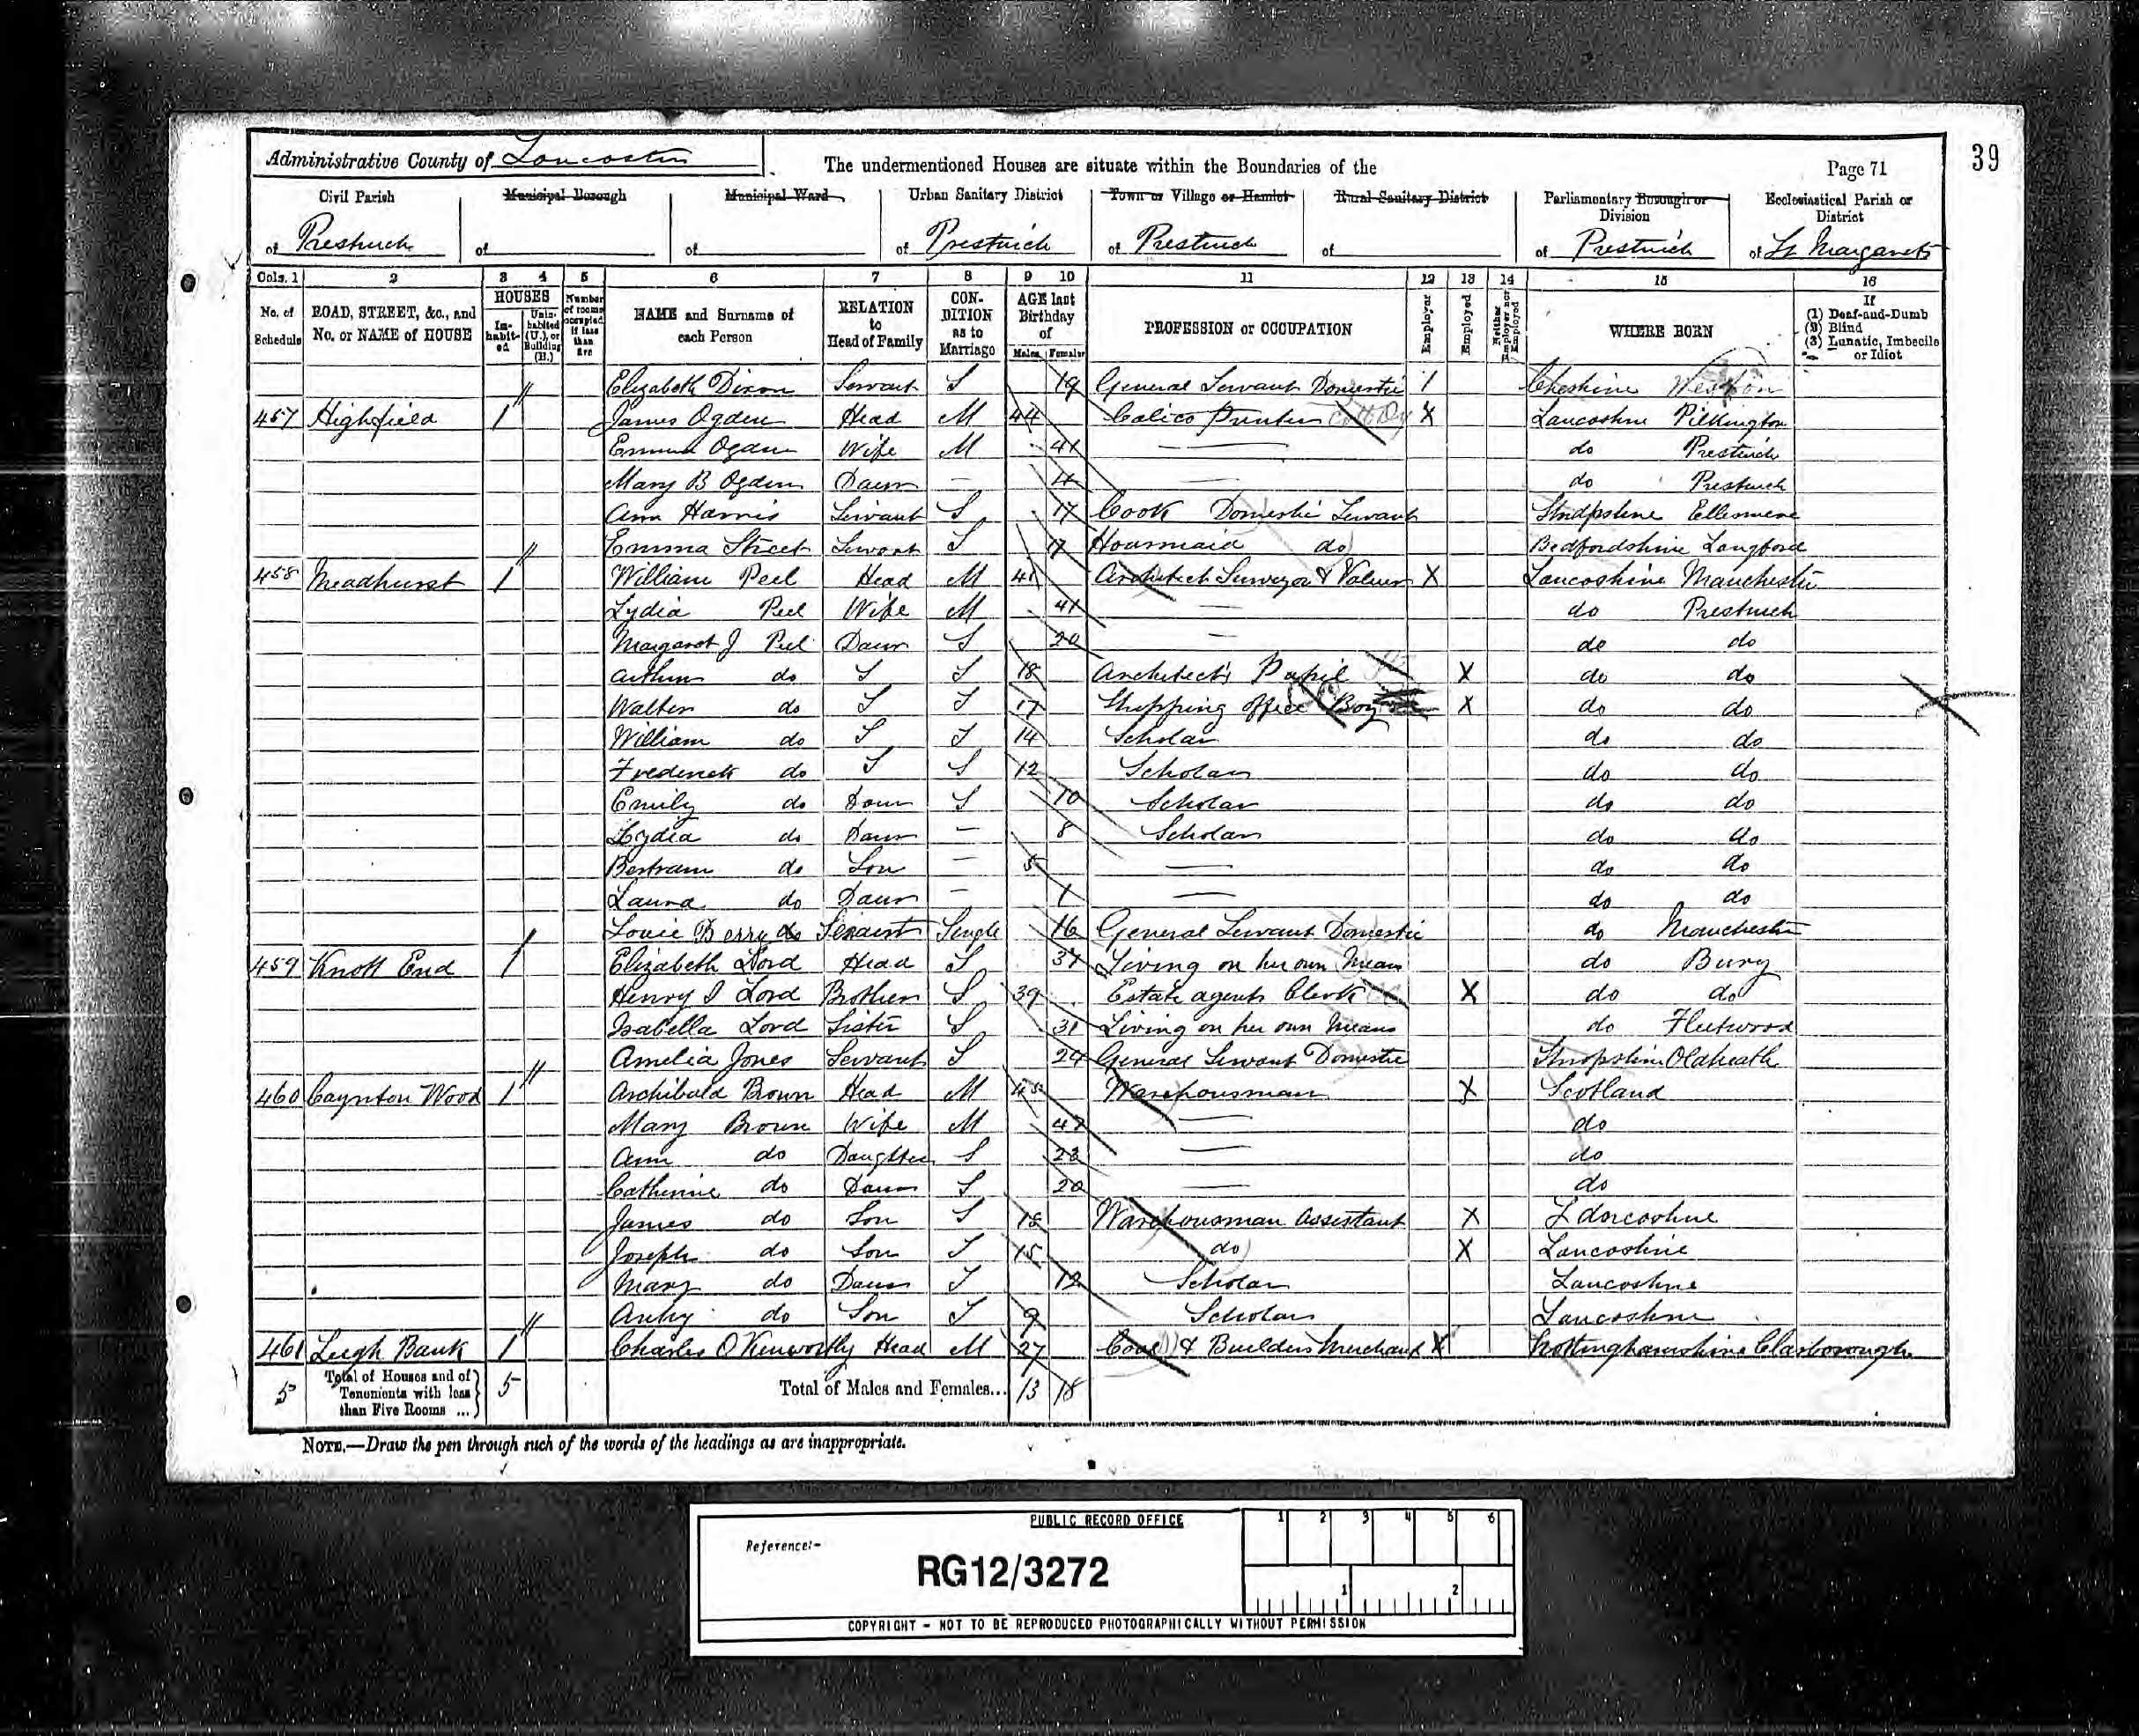 39
Administrative County of Lancaster
The undermentioned Houses are situate within the Boundaries of the
Page 71
Civil Parish
Municipal Borough
Municipal Ward
Urban Sanitary District
Town or Village or Hamlet
Rural Sanitary District
Parliamentary Borough or Division
Ecclesiastical Parish or District
of Prestwich of of of Prestwich of Prestwich of of Prestwich of St Margarets
Cols. 1 2 3 4 5 6 7 8 9 10 11 12 13 14 15 16
No. of Schedule
ROAD, STREET, &c., and No. or NAME of HOUSE
HOUSES
Inhabited
Uninhabited (U.), or Building (B.)
Number of rooms occupied if less than five
NAME and Surname of each Person
RELATION to Head of Family
CONDITION as to Marriage
AGE last Birthday of
Males Females
PROFESSION or OCCUPATION
Employer
Employed
Neither Employer nor Employed
WHERE BORN
If (1) Deaf-and-Dumb (2) Blind (3) Lunatic, Imbecile or Idiot
Elizabeth Dixon Servant S 19 General Servant Domestic / Cheshire
457 Highfield 1 James Ogden Head M 44 Calico Printer X Lancashire Pilkington
Emma Ogden Wife M 41 — do Prestwich
Mary B Ogden Daur — 4 — do Prestwich
Ann Harris Servant S 17 Cook Domestic Servant Shropshire Ellesmere
Emma Street Servant S 17 Housmaid do Bedfordshire Langford
458 Meadhurst 1 William Peel Head M 41 Architect Surveyor & Valuer X Lancashire Manchester
Lydia Peel Wife M 41 — do Prestwich
Margaret J Peel Daur S 20 — do do
Arthur do S S 18 Architects Pupil X do do
Walter do S S 17 Shipping office Boy X do do
William do S S 14 Scholar do do
Frederick do S S 12 Scholar do do
Emily do Daur S 10 Scholar do do
Lydia do Daur — 8 Scholar do do
Bertram do Son — 5 — do do
Laura do Daur — 1 — do do
Louie Berry do Servant Single 16 General Servant Domestic do Manchester
459 Knott End 1 Elizabeth Lord Head S 37 Living on her own Means do Bury
Henry I Lord Brother S 39 Estate agents Clerk X do do
Isabella Lord Sister S 31 Living on her own Means do Fleetwood
Amelia Jones Servant S 24 General Servant Domestic Shropshire Oldheath
460 Caynton Wood 1 Archibald Brown Head M 45 Warehousman X Scotland
Mary Brown Wife M 47 — do
Ann do Daughter S 23 — do
Catherine do Daur S 20 — do
James do Son S 18 Warehousman Assistant X Lancashire
Joseph do Son S 15 do X Lancashire
Mary do Daur S 12 Scholar Lancashire
do Son S 9 Scholar Lancashire
461 Leigh Bank 1 Charles O Kenworthy Head M 27 Coal & Builders Merchant X Nottinghamshire Clarborough
5 Total of Houses and of Tenements with less than Five Rooms ... 5 Total of Males and Females... 13 18
NOTE.—Draw the pen through such of the words of the headings as are inappropriate.
PUBLIC RECORD OFFICE
Reference:-
RG12/3272
1 2 3 4 5 6
1 2
COPYRIGHT - NOT TO BE REPRODUCED PHOTOGRAPHICALLY WITHOUT PERMISSION